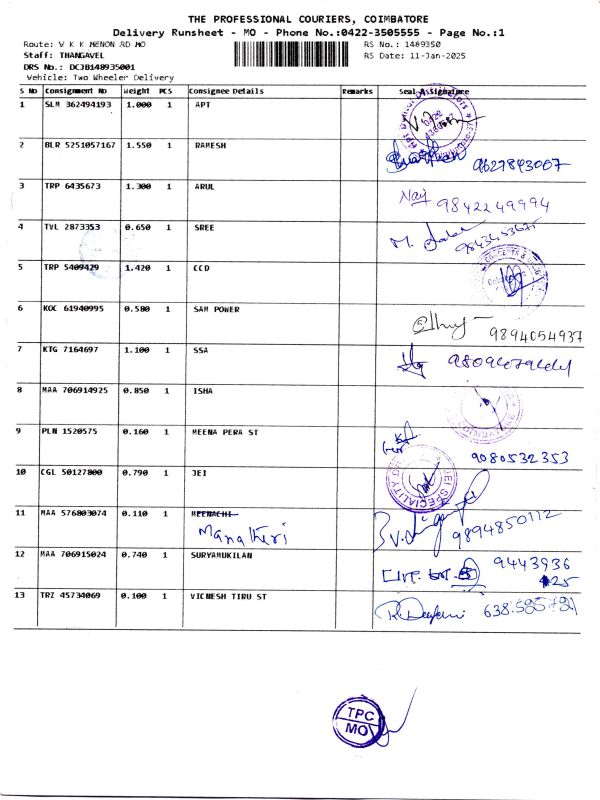 THE PROFESSIONAL COURIERS, COIMBATORE
Delivery Runsheet - MO - Phone No.:0422-3505555 - Page No.:1
Route: V K K MENON RD MO RS No.: 1489350
Staff: THANGAVEL RS Date: 11-Jan-2025
DRS No.: DCJB148935001
Vehicle: Two Wheeler Delivery
S No Consignment No Weight PCS Consignee Details Remarks Seal Assignature
1 SLM 362494193 1.000 1 APT
2 BLR 5251057167 1.550 1 RAMESH 9627843007
3 TRP 6435673 1.300 1 ARUL 9842249994
4 TVL 2873353 0.650 1 SREE
5 TRP 5409429 1.420 1 CCD
6 KOC 61940995 0.580 1 SAM POWER 9894054937
7 KTG 7164697 1.100 1 SSA
8 MAA 706914925 0.850 1 ISHA
9 PLN 1520575 0.160 1 MEENA PERA ST 9080532353
10 CGL 50127800 0.790 1 JEI JEI SPECIALITY
11 MAA 576803074 0.110 1 MEENACHI 9894850112
12 MAA 706915024 0.740 1 SURYAMUKILAN 9443936
13 TRZ 45734069 0.100 1 VIGNESH TIRU ST
TPC
MO